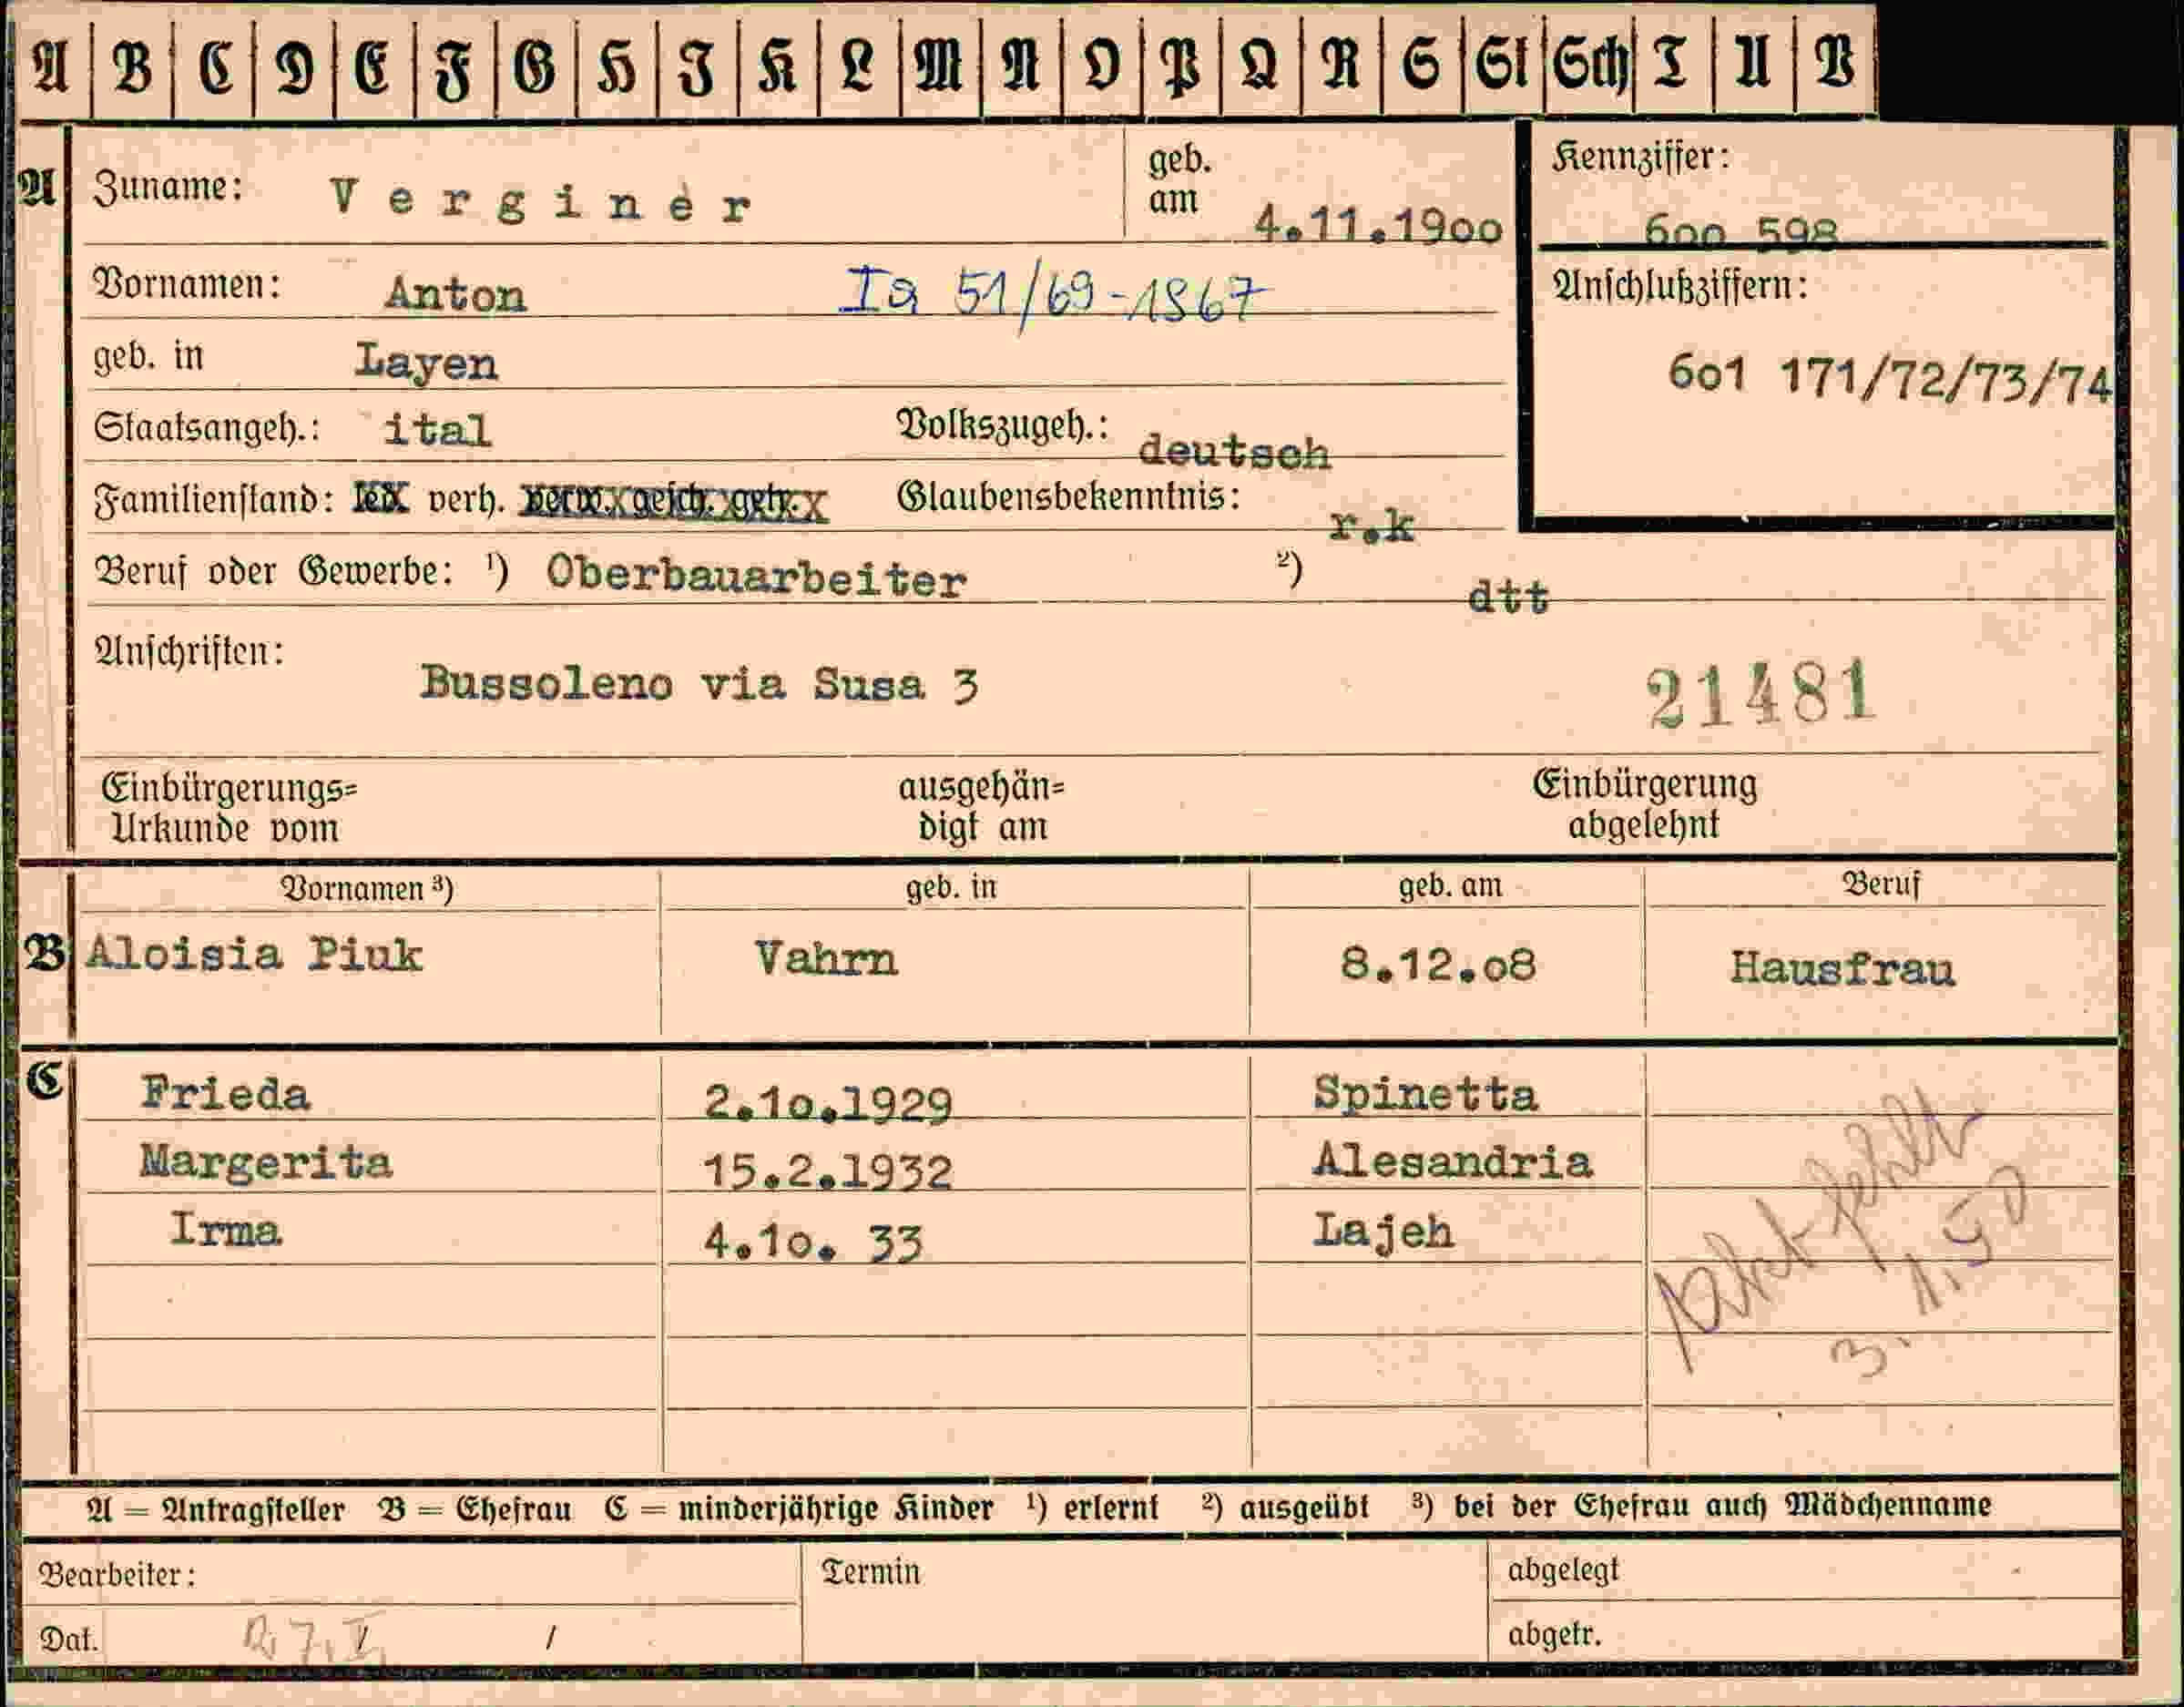 A B C D E F G H I K L M N O P Q R S St Sch T U V
A Zuname: Verginer geb. am 4.11.1900 Kennziffer: 600 598
Vornamen: Anton Ia 51/69-1867 Anschlußziffern:
geb. in Layen 601 171/72/73/74
Staatsangeh.: ital Volkszugeh.: deutsch
Familienstand: led. verh. verw. gesch. getr. Glaubensbekenntnis: r.k
Beruf oder Gewerbe: ¹) Oberbauarbeiter ²) dtt
Anschriften: Bussoleno via Susa 3 21481
Einbürgerungs= ausgehän= Einbürgerung
Urkunde vom digt am abgelehnt
Vornamen ³) geb. in geb. am Beruf
B Aloisia Piuk Vahrn 8.12.08 Hausfrau
C Frieda 2.10.1929 Spinetta
Margerita 15.2.1932 Alesandria
Irma 4.10. 33 Lajeh
fehlt
3.1.50
A = Antragsteller B = Ehefrau C = minderjährige Kinder ¹) erlernt ²) ausgeübt ³) bei der Ehefrau auch Mädchenname
Bearbeiter: Termin abgelegt
Dat. / / abgetr.